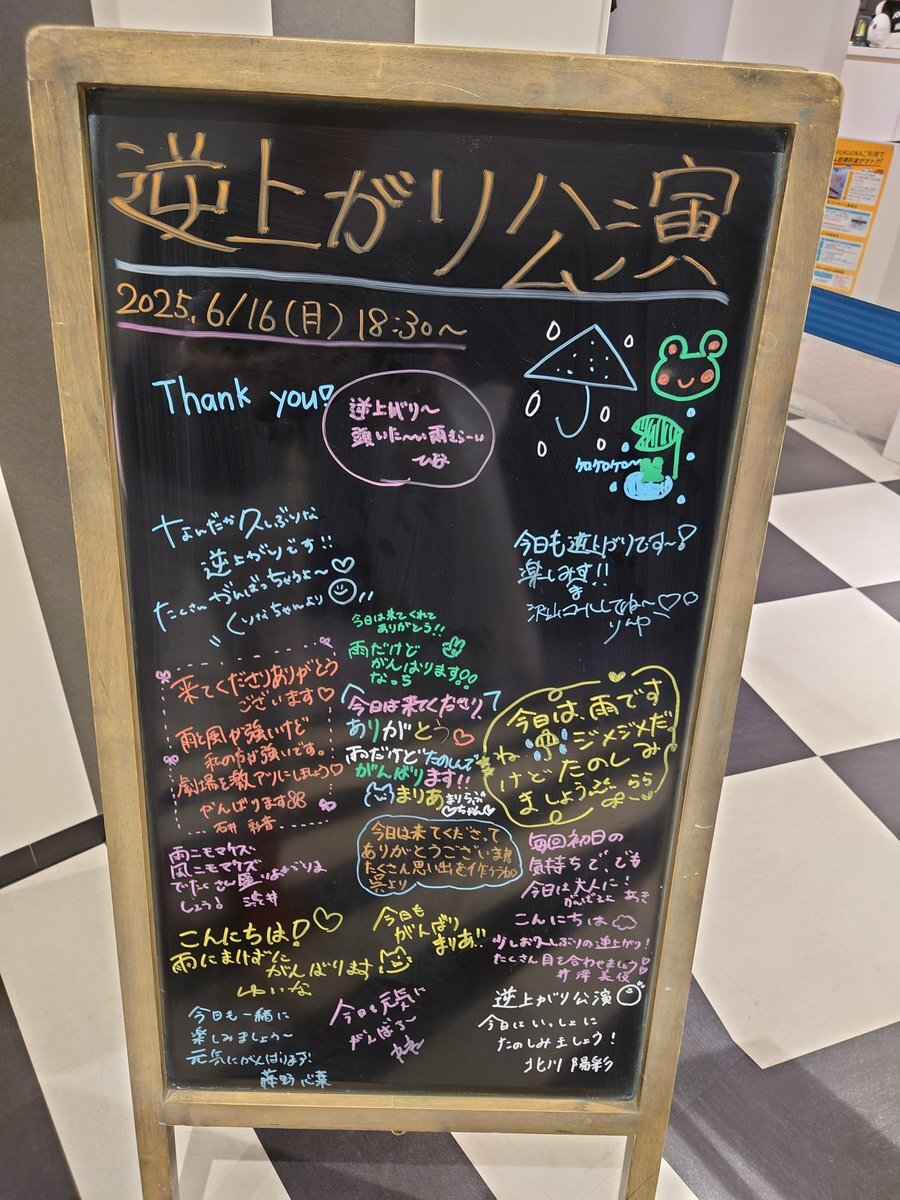 逆上がり公演
2025.6/16(月) 18:30〜
Thank you♡
逆上がり〜
頭いた〜い雨むらーい
ケロケロケロ〜
なんだか久しぶりな
逆上がりです!!
たくさんがんばっちゃうよ〜♡
くりなちゃんより
今日も逆上がりです〜!
楽しみます!!
沢山コールしてね〜♡♡
りんやー
来てくださりありがとう
ございます♡
雨と風が強いけど
私の方が強いです。
劇場を激アツにしましょう♡
がんばります
石井 彩音
今日は来てくれて
ありがとう!!
雨だけど
がんばります!!
なっち
今日は来てくださり、
ありがとう♡
雨だけどたのしんで
がんばります!!
まりあ
まりらぶ
ちゃん♡
今日は、雨です
ね ジメジメだ
けど たのしみ
ましょう らら
今日は来てくださって
ありがとうございます!!
たくさん思い出を作ろうね♡
呉より
雨ニモマケズ
風ニモマケズ
でたくさん盛り上がりま
しょう! 渋井
毎回初日の
気持ちで、でも
今日は大人に!
がんばるよ あき
こんにちは!♡
雨にまけずに
がんばります
ゆいな
今日も
がんばり
まりあ!!
こんにちは
少しお久しぶりの逆上がり!
たくさん目を合わせましょう!
井澤美優
今日も一緒に
楽しみましょう〜
元気にがんばります!
藤野 心葉
今日も元気に
がんばる〜
逆上がり公演
今日はいっしょに
たのしみましょう!
北川 陽彩